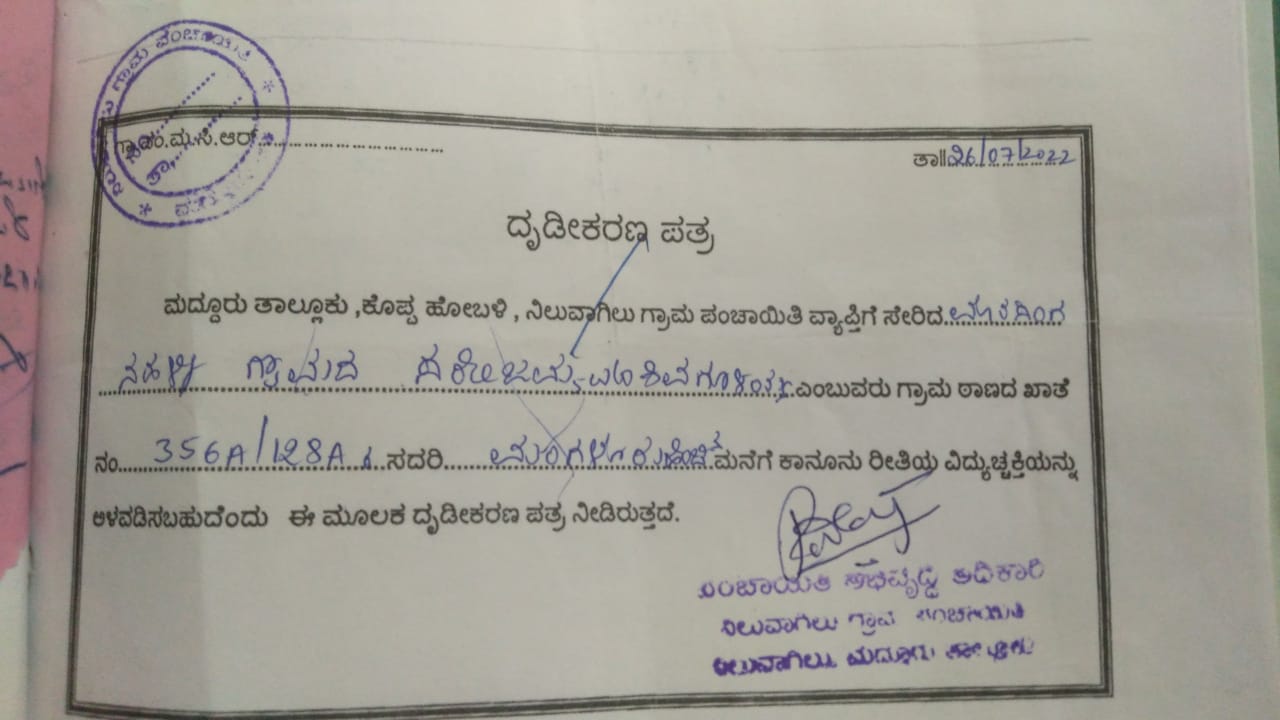 ಗ್ರಾಮ ಪಂಚಾಯಿತಿ
ಗ್ರಾ.ಪಂ.ಮ.ಸಿ.ಆರ್..............................
ತಾ॥26/07/2022
ದೃಡೀಕರಣ ಪತ್ರ
ಮದ್ದೂರು ತಾಲ್ಲೂಕು ,ಕೊಪ್ಪ ಹೋಬಳಿ , ನಿಲುವಾಗಿಲು ಗ್ರಾಮ ಪಂಚಾಯಿತಿ ವ್ಯಾಪ್ತಿಗೆ ಸೇರಿದ
ನಹಳ್ಳಿ ಗ್ರಾಮದ ಎಂಬುವರು ಗ್ರಾಮ ಠಾಣದ ಖಾತೆ
ನಂ. 356A/128A ಸದರಿ ಮಂಗಳೂರು ಹೆಂಚಿನ ಮನೆಗೆ ಕಾನೂನು ರೀತಿಯ ವಿದ್ಯುಚ್ಚಕ್ತಿಯನ್ನು
ಅಳವಡಿಸಬಹುದೆಂದು ಈ ಮೂಲಕ ದೃಡೀಕರಣ ಪತ್ರ ನೀಡಿರುತ್ತದೆ.
ಪಂಚಾಯತಿ ಅಭಿವೃದ್ಧಿ ಅಧಿಕಾರಿ
ನಿಲುವಾಗಿಲು ಗ್ರಾಮ ಪಂಚಾಯಿತಿ
ನಿಲುವಾಗಿಲು, ಮದ್ದೂರು ತಾಲ್ಲೂಕು